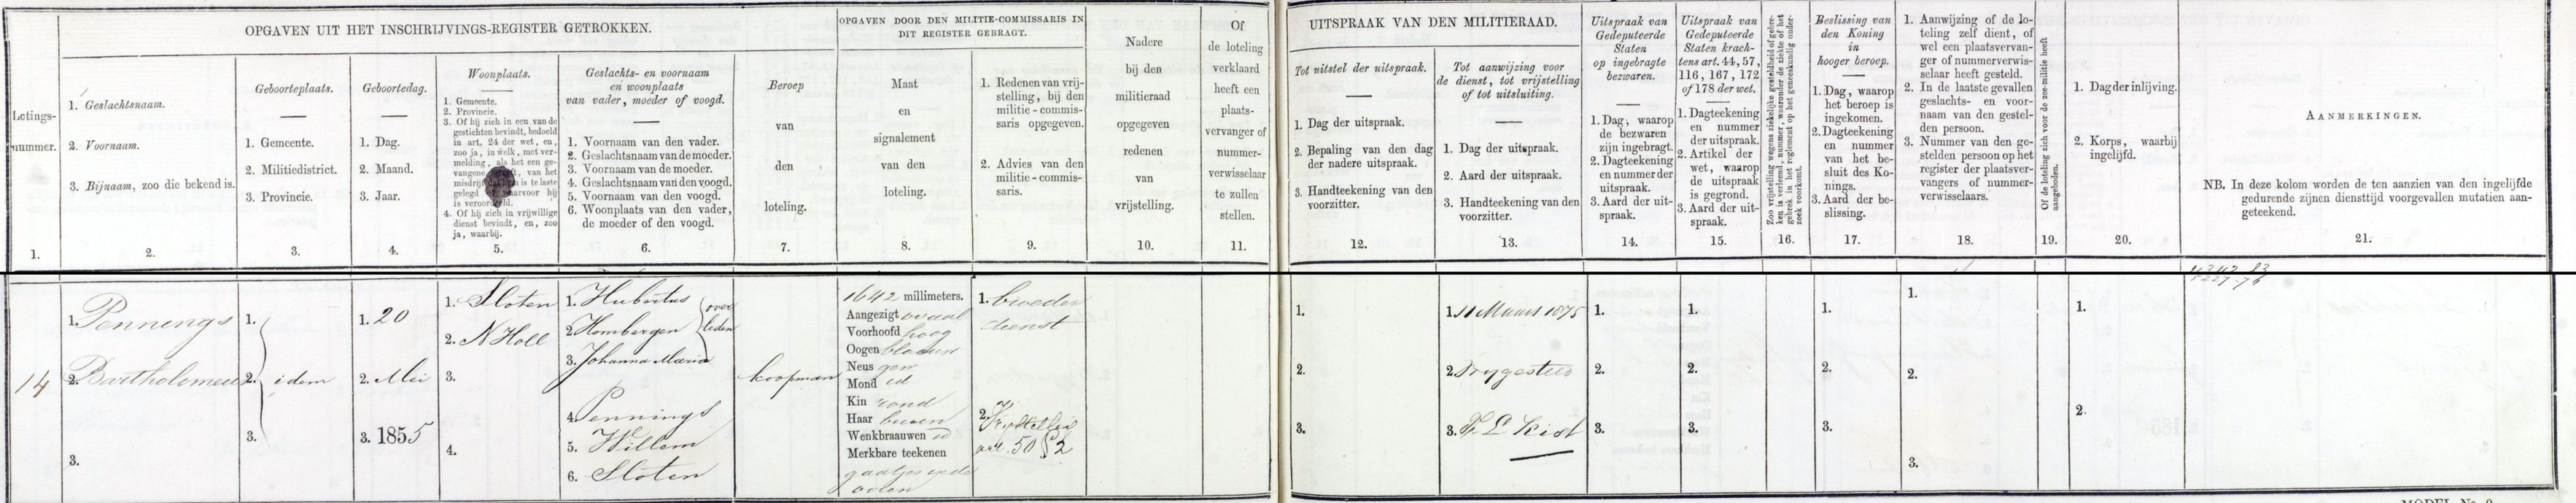 OPGAVEN UIT HET INSCHRIJVINGS-REGISTER GETROKKEN.
Lotings-
nummer.
1.
1. Geslachtsnaam.
2. Voornaam.
3. Bijnaam, zoo die bekend is.
2.
Geboorteplaats.
1. Gemeente.
2. Militiedistrict.
3. Provincie.
3.
Geboortedag.
1. Dag.
2. Maand.
3. Jaar.
4.
Woonplaats.
1. Gemeente.
2. Provincie.
3. Of hij zich in een van de
gestichten bevindt, bedoeld
in art. 24 der wet, en,
zoo ja, in welk, met ver-
melding, als het een ge-
vangene , van het
misdrijf is te laste
gelegd waarvoor hij
is veroordeeld.
4. Of hij zich in vrijwillige
dienst bevindt, en, zoo
ja, waarbij.
5.
Geslachts- en voornaam
en woonplaats
van vader, moeder of voogd.
1. Voornaam van den vader.
2. Geslachtsnaam van de moeder.
3. Voornaam van de moeder.
4. Geslachtsnaam van den voogd.
5. Voornaam van den voogd.
6. Woonplaats van den vader,
de moeder of den voogd.
6.
Beroep
van
den
loteling.
7.
OPGAVEN DOOR DEN MILITIE-COMMISSARIS IN
DIT REGISTER GEBRAGT.
Maat
en
signalement
van den
loteling.
8.
1. Redenen van vrij-
stelling, bij den
militie-commis-
saris opgegeven.
2. Advies van den
militie-commis-
saris.
9.
Nadere
bij den
militieraad
opgegeven
redenen
van
vrijstelling.
10.
Of
de loteling
verklaard
heeft een
plaats-
vervanger of
nummer-
verwisselaar
te zullen
stellen.
11.
UITSPRAAK VAN DEN MILITIERAAD.
Tot uitstel der uitspraak.
1. Dag der uitspraak.
2. Bepaling van den dag
der nadere uitspraak.
3. Handteekening van den
voorzitter.
12.
Tot aanwijzing voor
de dienst, tot vrijstelling
of tot uitsluiting.
1. Dag der uitspraak.
2. Aard der uitspraak.
3. Handteekening van den
voorzitter.
13.
Uitspraak van
Gedeputeerde
Staten
op ingebragte
bezwaren.
1. Dag, waarop
de bezwaren
zijn ingebragt.
2. Dagteekening
en nummer der
uitspraak.
3. Aard der uit-
spraak.
14.
Uitspraak van
Gedeputeerde
Staten krach-
tens art. 44, 57,
116, 167, 172
of 178 der wet.
1. Dagteekening
en nummer
der uitspraak.
2. Artikel der
wet, waarop
de uitspraak
is gegrond.
3. Aard der uit-
spraak.
15.
Zoo vrijstelling wegens ziekelijke gesteldheid of gebre-
ken is verleend, nummer, waaronder de ziekte of het
gebrek in het reglement op het geneeskundig onder-
zoek voorkomt.
16.
Beslissing van
den Koning
in
hooger beroep.
1. Dag, waarop
het beroep is
ingekomen.
2. Dagteekening
en nummer
van het be-
sluit des Ko-
nings.
3. Aard der be-
slissing.
17.
1. Aanwijzing of de lo-
teling zelf dient, of
wel een plaatsvervan-
ger of nummerverwis-
selaar heeft gesteld.
2. In de laatste gevallen
geslachts- en voor-
naam van den gestel-
den persoon.
3. Nummer van den ge-
stelden persoon op het
register der plaatsver-
vangers of nummer-
verwisselaars.
18.
Of de loteling zich voor de zee-militie heeft
aangeboden.
19.
1. Dag der inlijving.
2. Korps, waarbij
ingelijfd.
20.
AANMERKINGEN.
NB. In deze kolom worden de ten aanzien van den ingelijfde
gedurende zijnen diensttijd voorgevallen mutatien aan-
geteekend.
21.
14
1. Pennings
2. Bartholomeus
3.
1.
2. idem
3.
1. 20
2. Mei
3. 1855
1. Sloten
2. N Holl
3.
4.
1. Hubertus
2 Hombergen
overleden
3. Johanna Maria
4. Pennings
5. Willem
6. Sloten
koopman
1642 millimeters.
Aangezigt ovaal
Voorhoofd hoog
Oogen blaauw
Neus gew
Mond id
Kin rond
Haar bruin
Wenkbraauwen id
Merkbare teekenen
gaatjes in de
ooren
1. broeder
dienst
2. Vrijstellin
art. 50 § 2
1.
2.
3.
1. 11 Maart 1875
2. Vrijgesteld
3. F L Kist
1.
2.
3.
1.
2.
3.
1.
2.
3.
1.
2.
3.
1.
2.